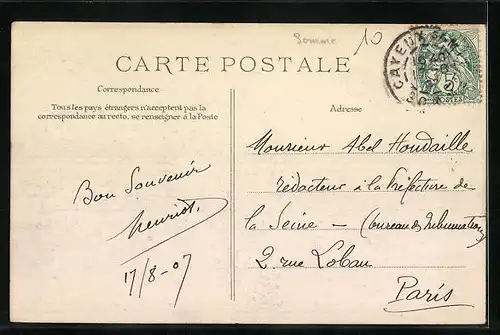 Somme
10
CAYEUX-S-MER
CARTE POSTALE
POSTES
Correspondance
Tous les pays étrangers n'acceptent pas la
correspondance au recto, se renseigner à la Poste
Adresse
Bon Souvenir
Henriot.
17/8-07
Monsieur Abel Houdaille
rédacteur à la Préfecture de
la Seine - (bureau des
2 rue Lobau
Paris